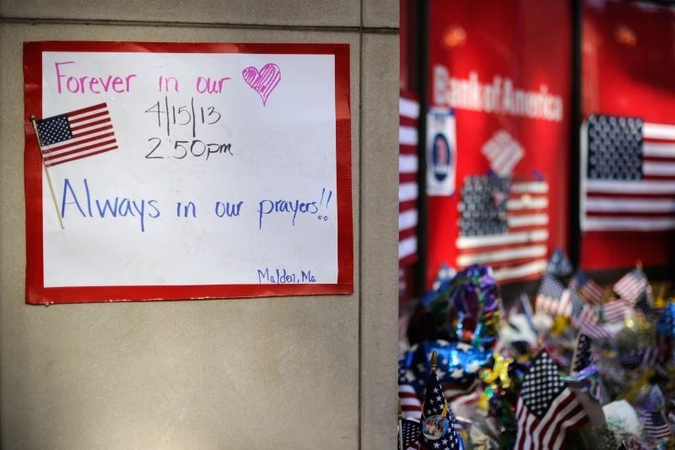 Forever in our
4/15/13
2:50pm
Always in our prayers!!
Malden, Ma
Bank of America